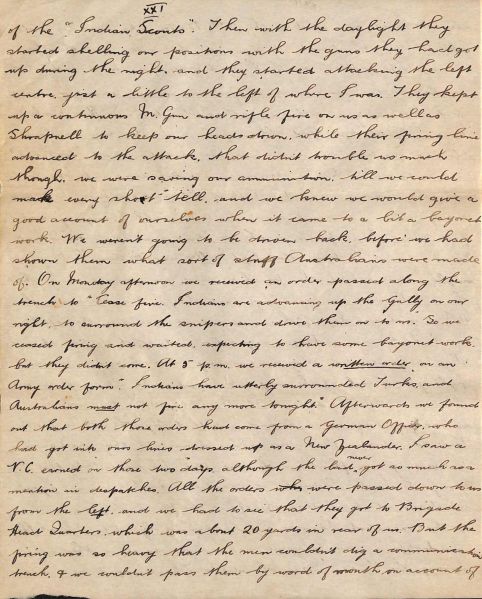 XXI
of the "Indian Scouts". Then with the daylight they
started shelling our positions with the guns they had got
up during the night, and they started attacking the left
centre, just a little to the left of where I was. They kept
up a continuous M. Gun and rifle fire on us as well as
Shrapnell to keep our heads down, while their firing line
advanced to the attack, that didn't trouble us much
though, we were saving our ammunition, till we could
make every shot tell, and we knew we would give a
good account of ourselves when it came to a bit a bayonet
work. We weren't going to be driven back, before we had
shown them what sort of stuff Australians were made
of. On Monday afternoon we received an order passed along the
trench to "Cease fire. Indians are advancing up the Gully on our
right, to surround the snipers and drive them on to us. So we
ceased firing and waited, expecting to have some bayonet work
but they didn't come. At 5 p.m. we received a written order on an
Army order form "Indians have utterly surrounded Turks, and
Australians must not fire any more tonight." Afterwards we found
out that both those orders had come from a German Officer, who
had got into ours lines dressed up as a New Zealander. I saw a
V.C. earned on those two days, although the laid never got so much as a
mention in despatches. All the orders were passed down to us
from the left, and we had to see that they got to Brigade
Head Quarters, which was about 20 yards in rear of us. But the
firing was so heavy that the men couldn't dig a communication
trench, & we couldn't pass them by word of mouth on account of